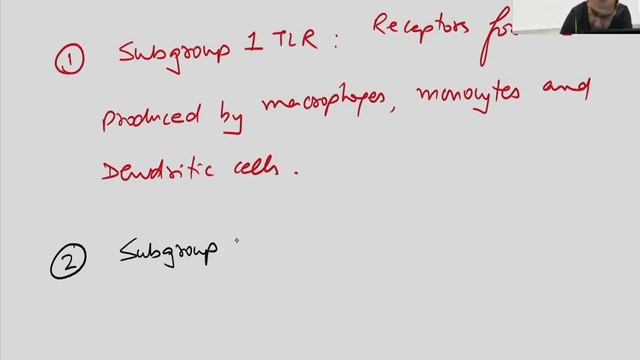 ① Subgroup 1 TLR : Receptors for
produced by macrophages, monocytes and
Dendritic cells.
② Subgroup